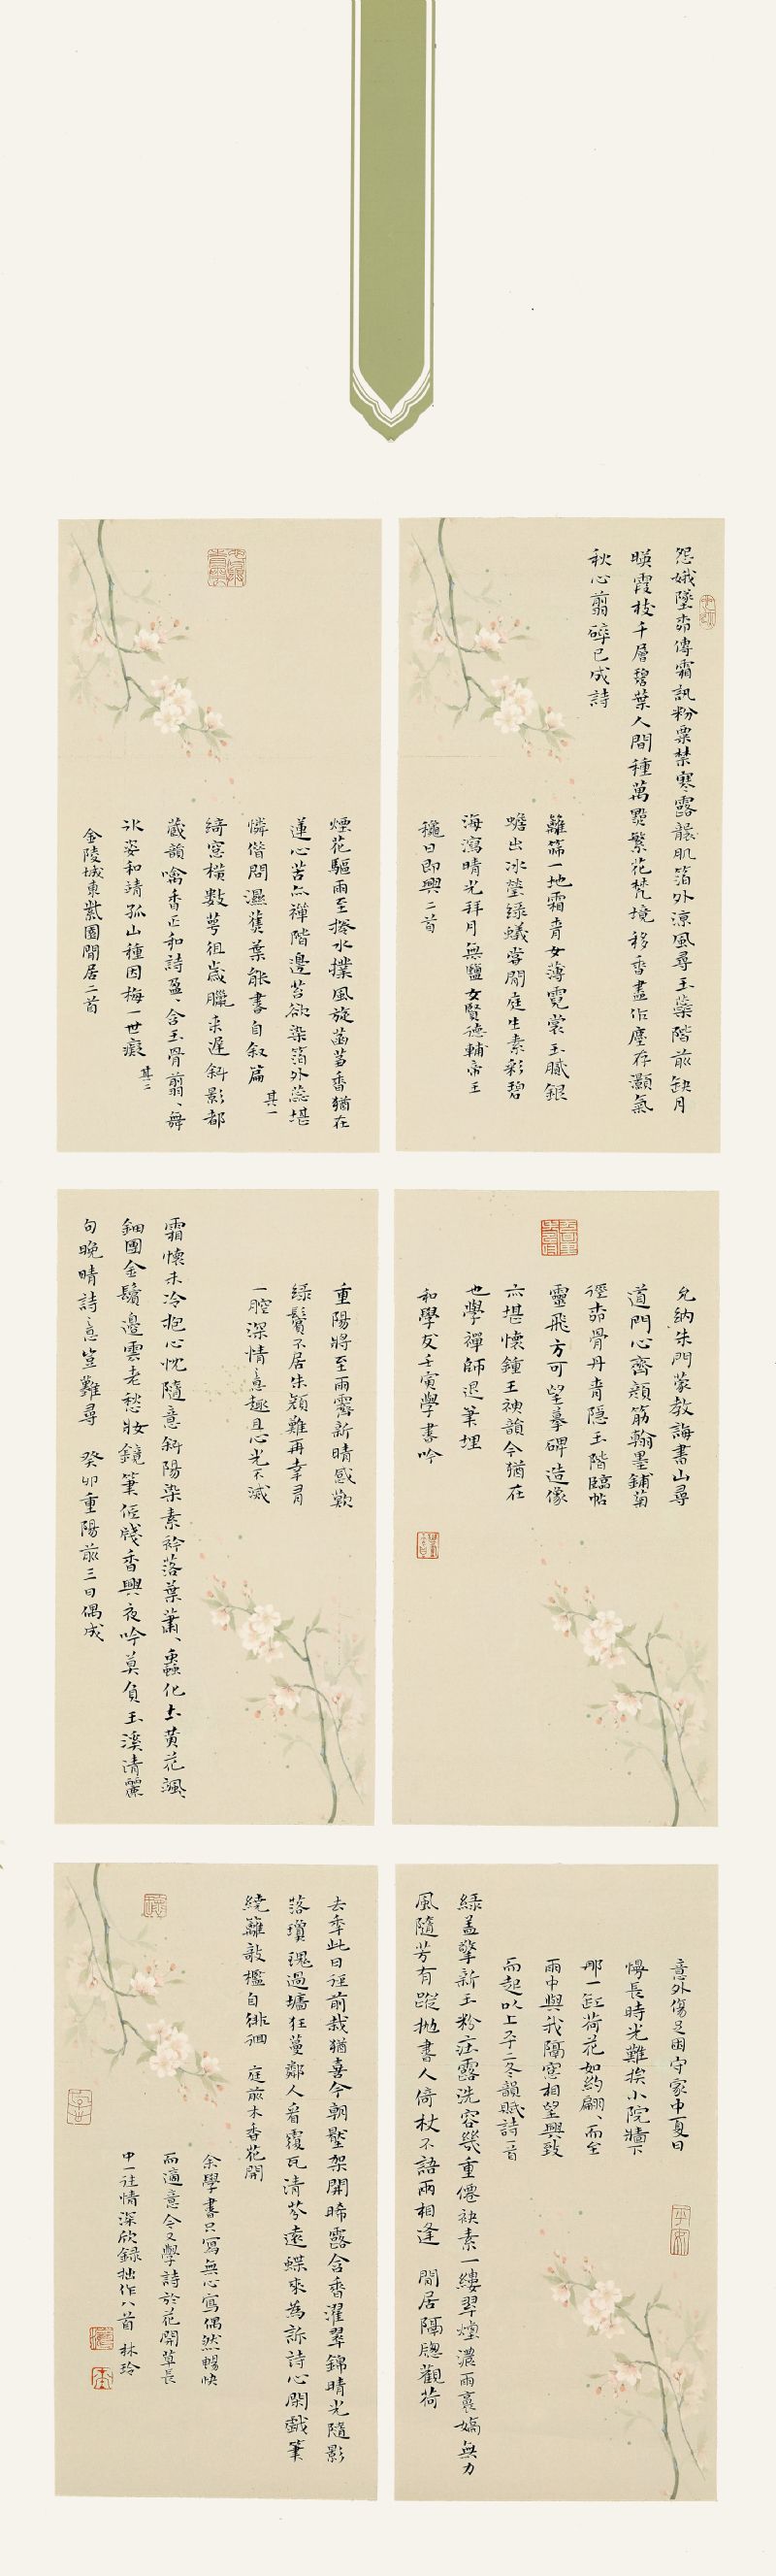 怨娥墜前傳霜訊粉粟禁寒露襲肌箔外涼風尋玉蘂階前缺月
暎霞枝千層碧葉人間種萬點繁花梵境移香盡作塵存灝氣
秋心翦碎已成詩
籬篩一地霜青女薄霓裳玉膩銀
蟾出冰瑩綠蟻嘗閒庭生素彩碧
海瀉晴光拜月無鹽女賢德輔帝王
穐日即興二首
煙花驅雨至撥水撲風旋菡萏香猶在
蓮心苦亦禪階邊苔欲染箔外蕊堪
憐偕問濕蕉葉能書自叙篇 其一
綺窓橫數萼徂歲臘來遲斜影都
蔵韻噙香正和詩盈、含玉骨翦、舞
冰姿和靖孤山種因梅一世癡 其二
金陵城東紫園閒居二首
允納朱門蒙教誨書山尋
道門心齋顔筋翰墨鋪菊
徑前骨丹青隱玉階臨帖
靈飛方可望摹碑造像
六堪懷鐘王袂韻今猶在
也學禪師退筆埋
和學友壬寅學書吟
重陽將至雨霽新晴感歎
綠鬢不居朱顔難再幸有
一腔深情意趣且心光不滅
霜懷未冷抱心忱隨意斜陽染素衿落葉蕭、蟲化土黄花颯、
鈿團金鬚邊雲老愁妝鏡筆仾牋香興夜吟莫負玉溪清麗
句晚晴詩意豈難尋 癸卯重陽前三日偶成
意外傷足困守家中夏日
愕長時光難挨小院牆下
那一缸荷花如約翩、而至
雨中與我隔窓相望興致
而起以上平二冬韻賦詩一首
綠盖擎新玉粉妝露洗容幾重僊袂素一縷翠煙濃雨裛嫣無力
風隨芳有蹤拋書人倚杖不語兩相逢 閒居隔牕觀荷
去季此日徑前栽猶喜今朝壂架開晞露含香濯翠錦晴光隨影
落瓊瑰過墻狂蔓鄰人看覆瓦清芬遠蝶來為訴詩心閑戲筆
繞籬敲檻自徘徊 庭前木香花開
余學書只寫無心寫偶然暢快
而適意今又學詩於花開草長
中一往情深欣録拙作八首 林玲